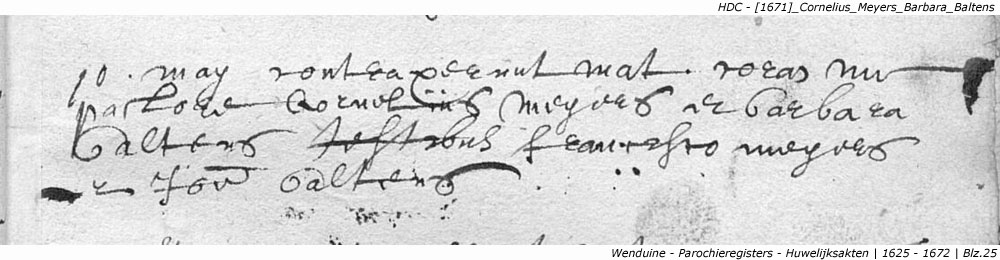 HDC - [1671]_Cornelius_Meyers_Barbara_Baltens
10. may contraxerunt mat. coram me
pastore Cornelius meyers et barbara
baltens testibus francisco meyers
et baltens
Wenduine - Parochieregisters - Huwelijksakten | 1625 - 1672 | Blz.25